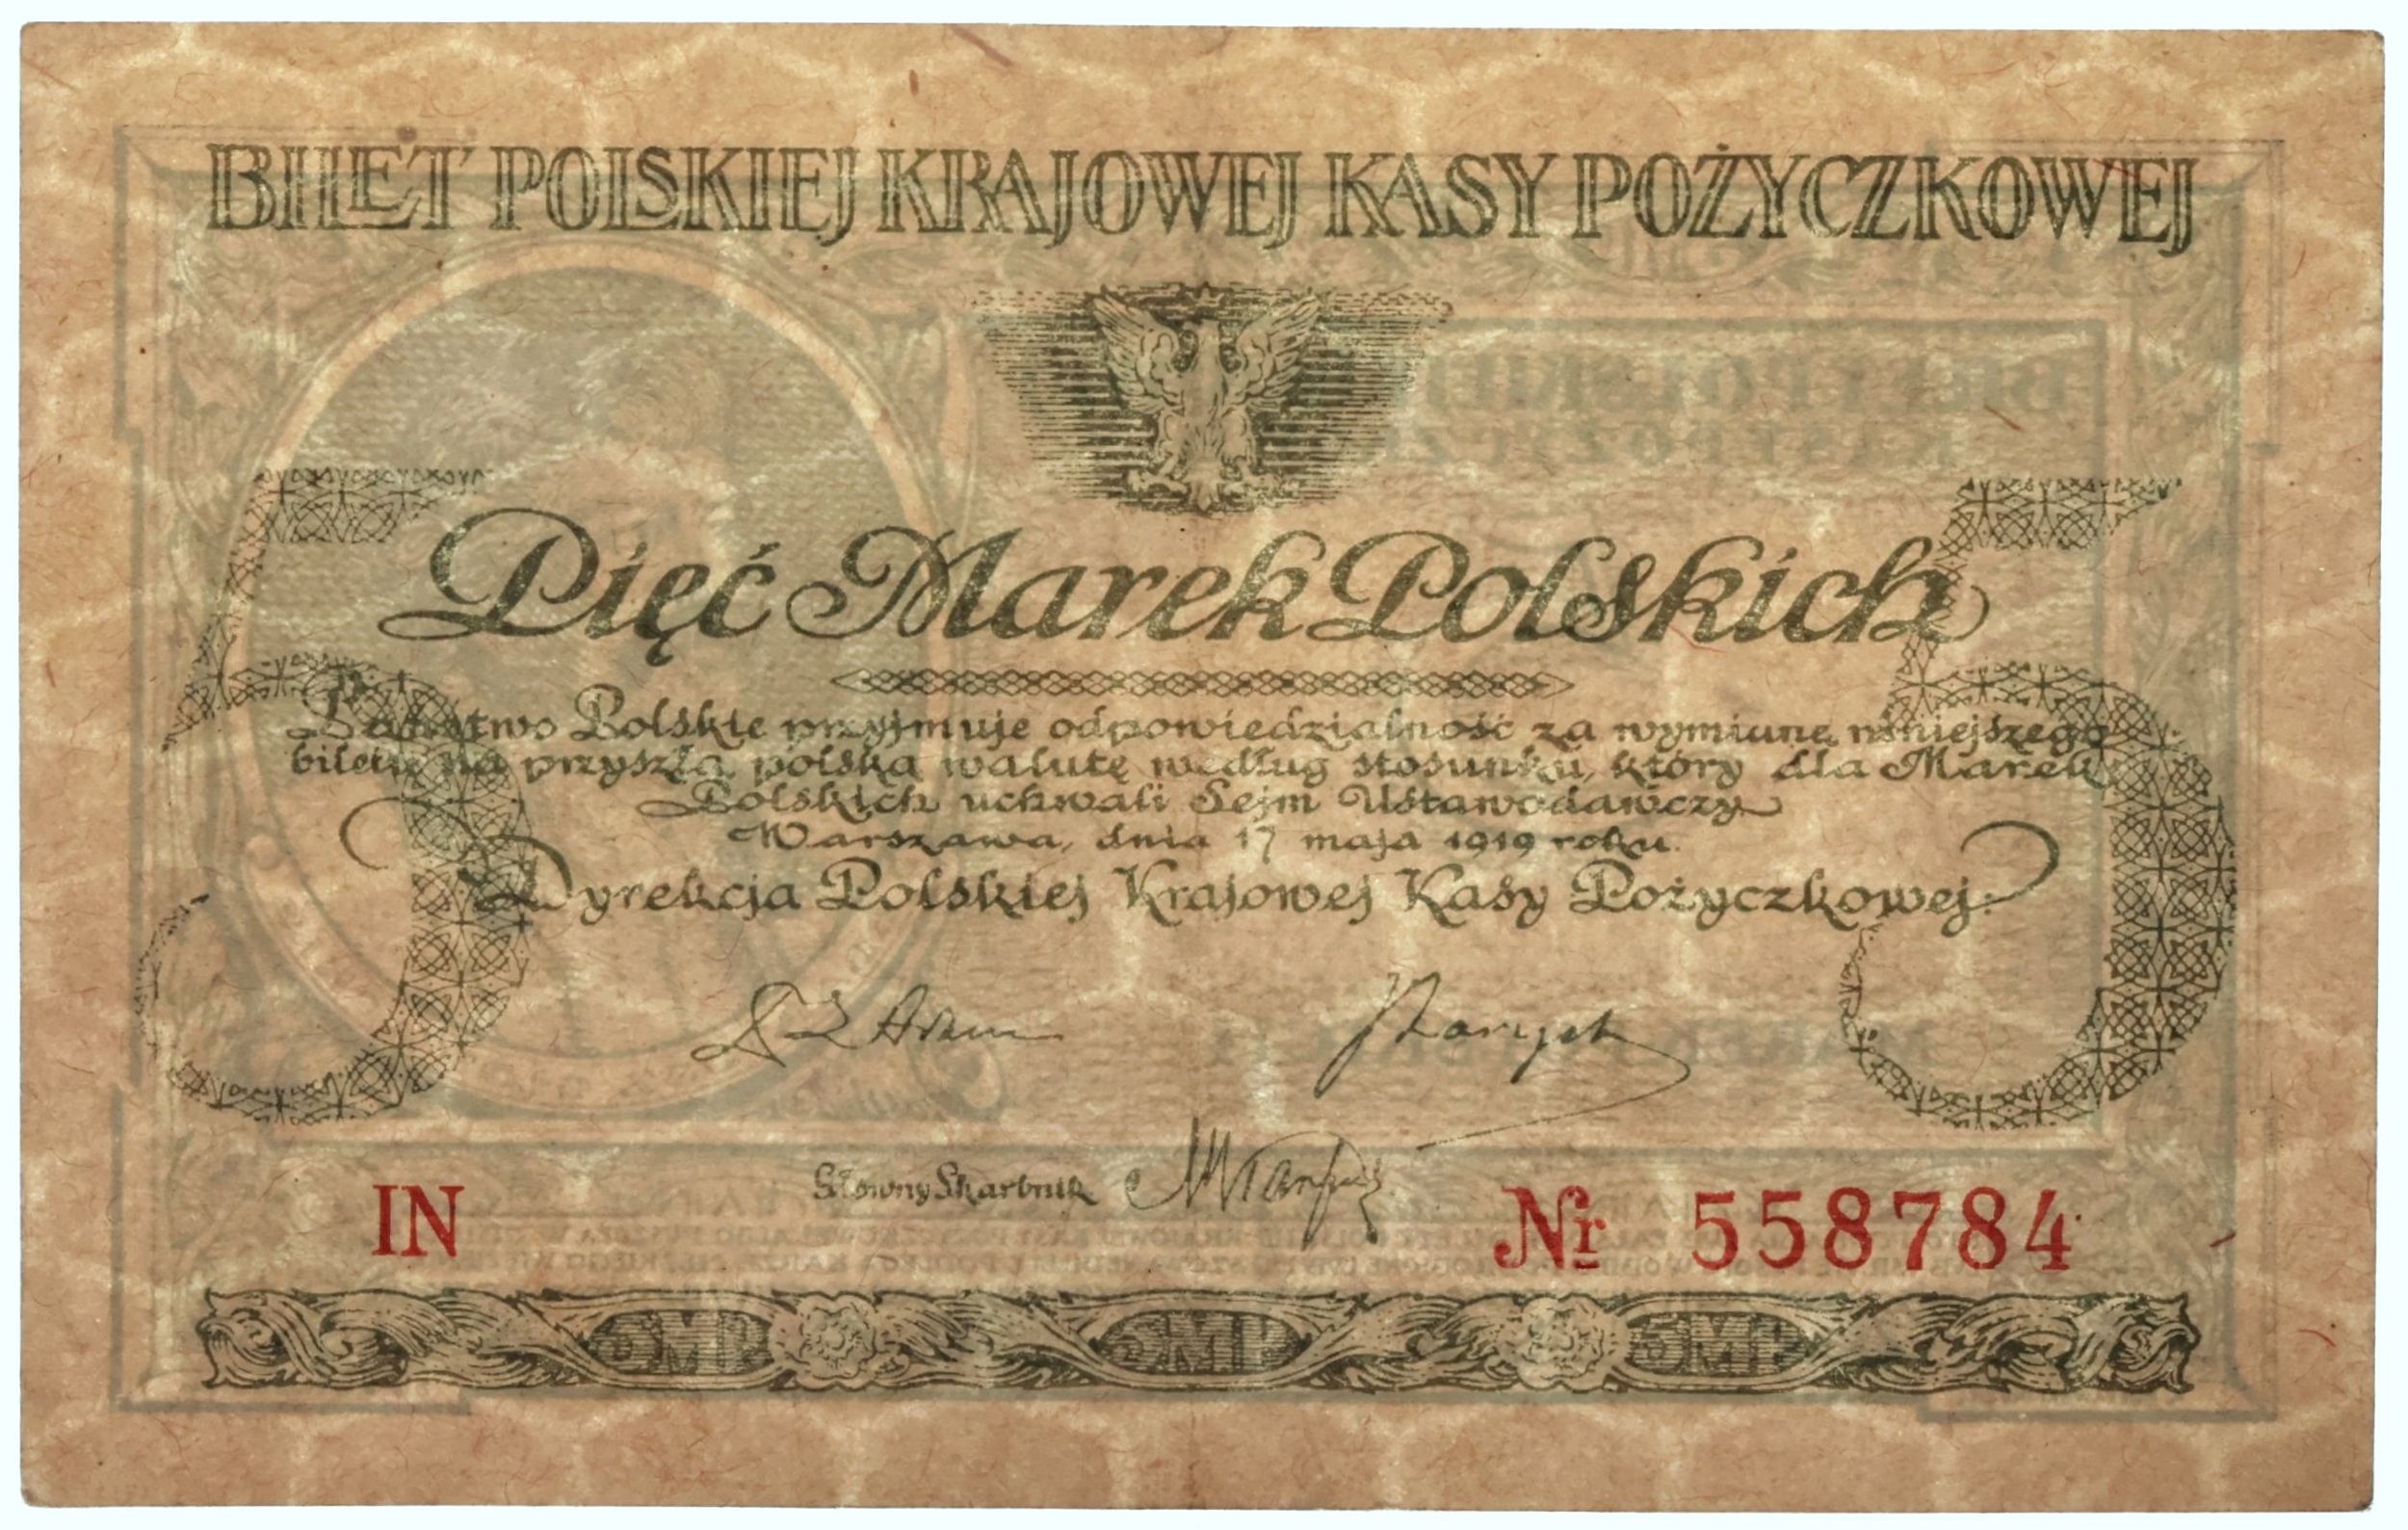 BILET POLSKIEJ KRAJOWEJ KASY POŻYCZKOWEJ
Pięć Marek Polskich
Państwo Polskie przyjmuje odpowiedzialność za wymianę niniejszego
biletu na przyszłą polską walutę według stosunku, który dla Marek
Polskich uchwali Sejm Ustawodawczy
Warszawa, dnia 17 maja 1919 roku.
Dyrekcja Polskiej Krajowej Kasy Pożyczkowej.
5 5
Główny Skarbnik
IN Nr 558784
5MP 5MP 5MP